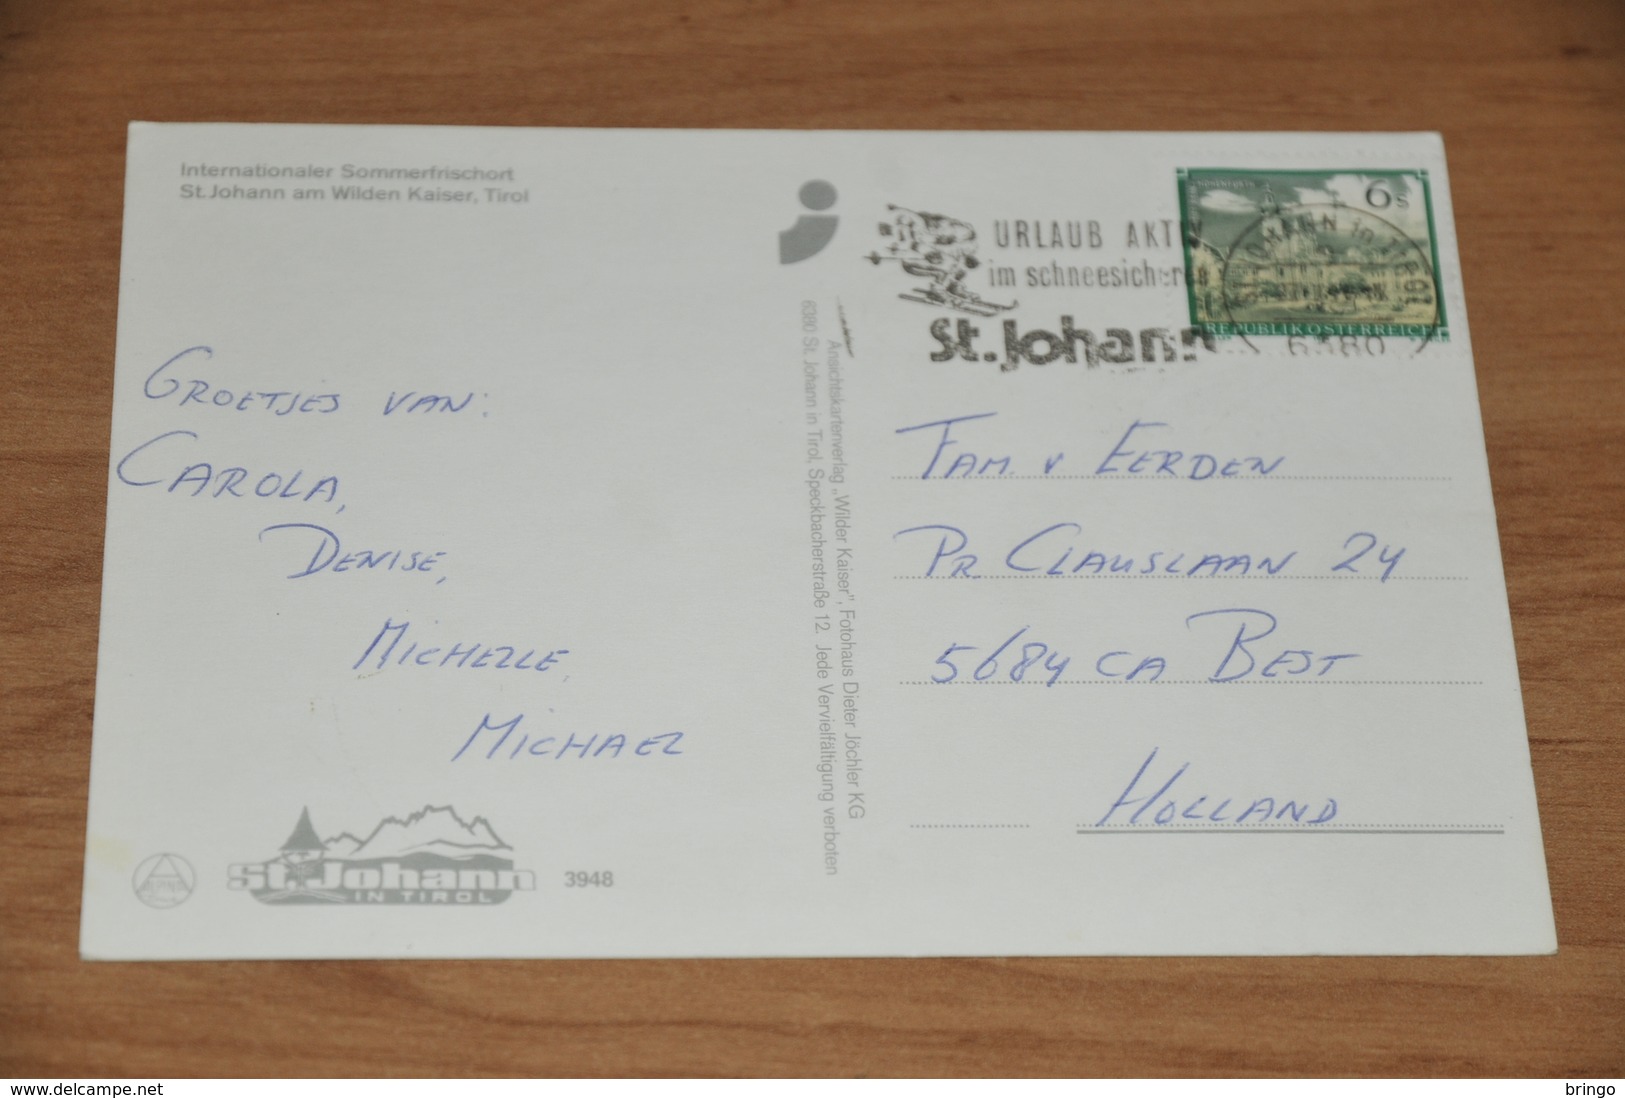 Internationaler Sommerfrischort
St. Johann am Wilden Kaiser, Tirol
URLAUB AKTIV
im schneesicheren
St. Johann
6s
REPUBLIK ÖSTERREICH
ST. JOHANN IN TIROL
6380
GROETJES VAN:
CAROLA,
DENISE,
MICHELLE,
MICHAEL
Ansichtskartenverlag „Wilder Kaiser", Fotohaus Dieter Jöchler KG
6380 St. Johann in Tirol, Speckbacherstraße 12. Jede Vervielfältigung verboten
FAM. V EERDEN
PR. CLAUSLAAN 24
5684 CA BEST
HOLLAND
ALPINA
St. Johann
IN TIROL
3948
www.delcampe.net
bringo